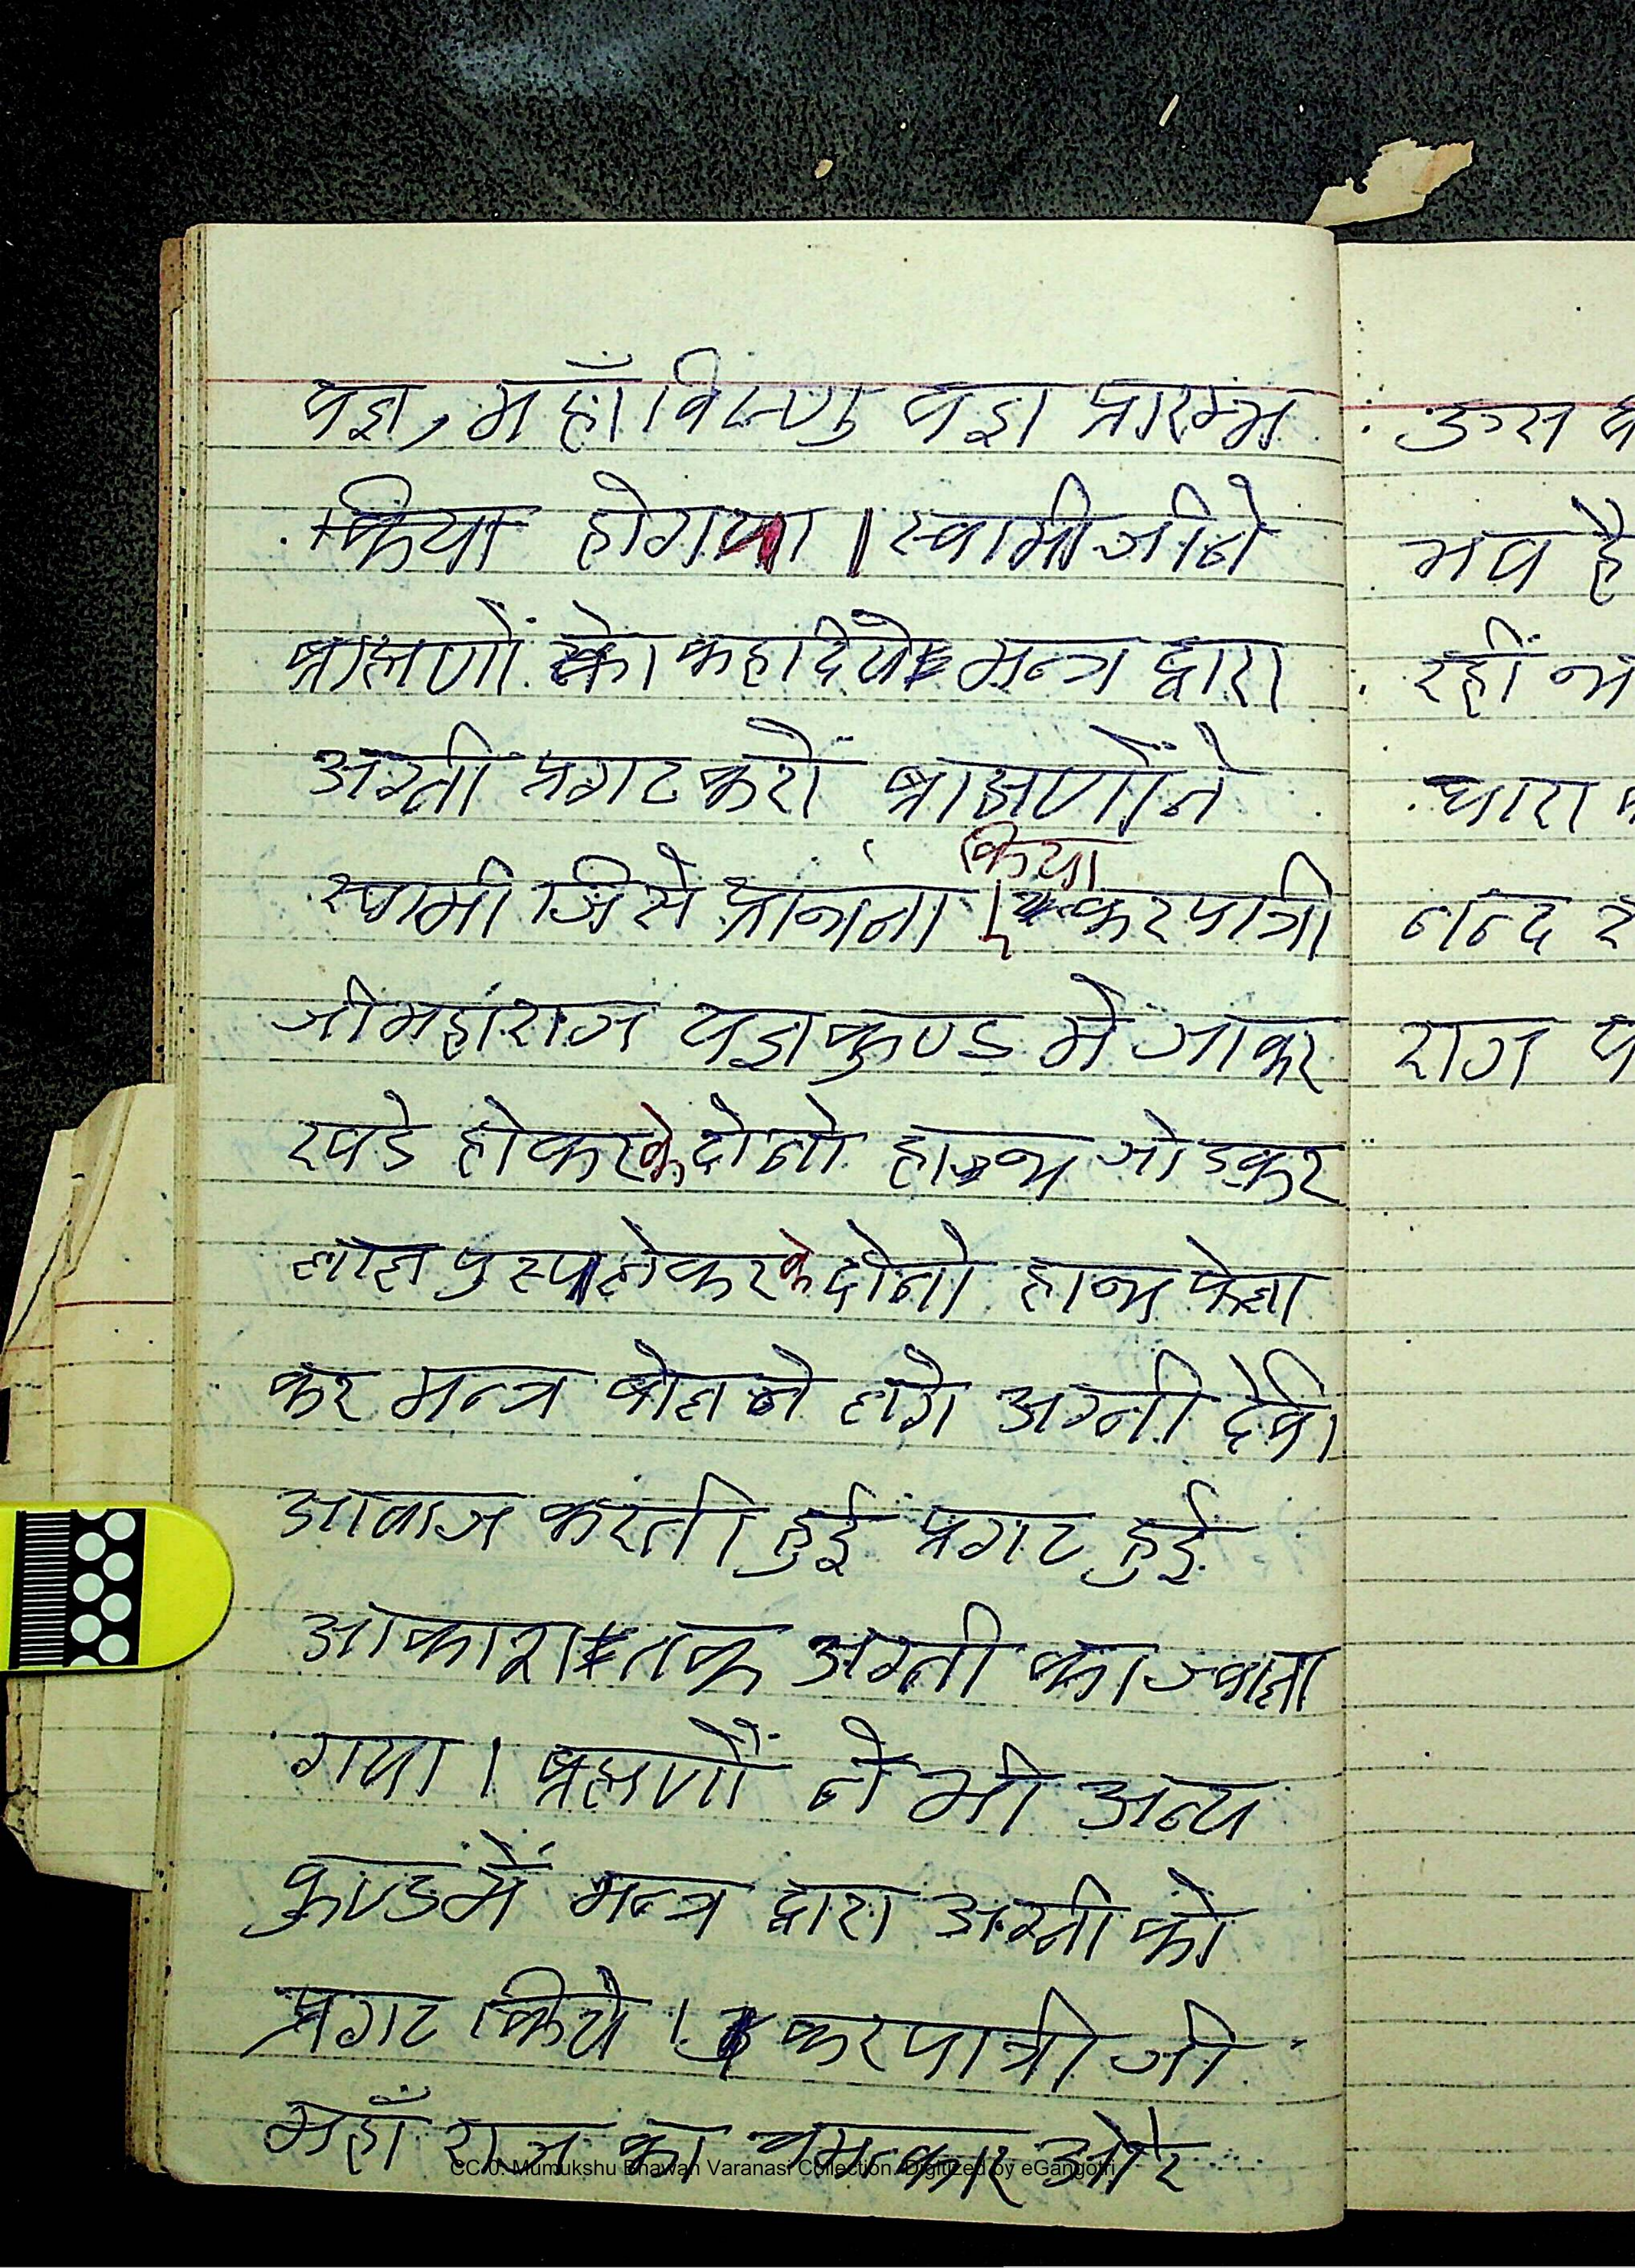 यज्ञ, महाँविष्णु यज्ञ प्रारम्भ
किया होगया । स्वामीजीने
ब्राह्मणों को कहा दिये मन्त्र द्वारा
अग्नी प्रगट करों ब्राह्मणोंने
किया
स्वामी जि से प्रार्थना । करपात्री
जी महाराज यज्ञकुण्ड मे जाकर
खडे होकरके दोनो हाथ जोडकर
लाल पुस्प लेकरके दोनो हाथ फेला
कर मन्त्र बोलने लगे अग्नी देवी
आवाज करती हुई प्रगट हुई
आकाश तक अग्नी का ज्वाला
गया । ब्रह्मणों ने भी अन्य
कुण्डमें मन्त्र द्वारा अग्नी को
प्रगट किये । करपात्री जी
महाँ राज का चमत्कार ओर
उस
मय है
रहीं
धारा
नन्द
राज
CC-0. Mumukshu Bhawan Varanasi Collection. Digitized by eGangotri